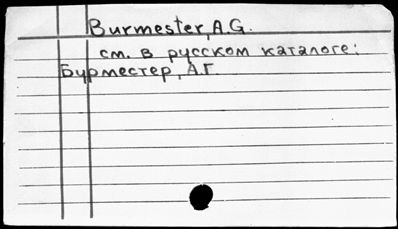 Burmester, A.G.
см. в русском каталоге:
Бурместер, А.Г.